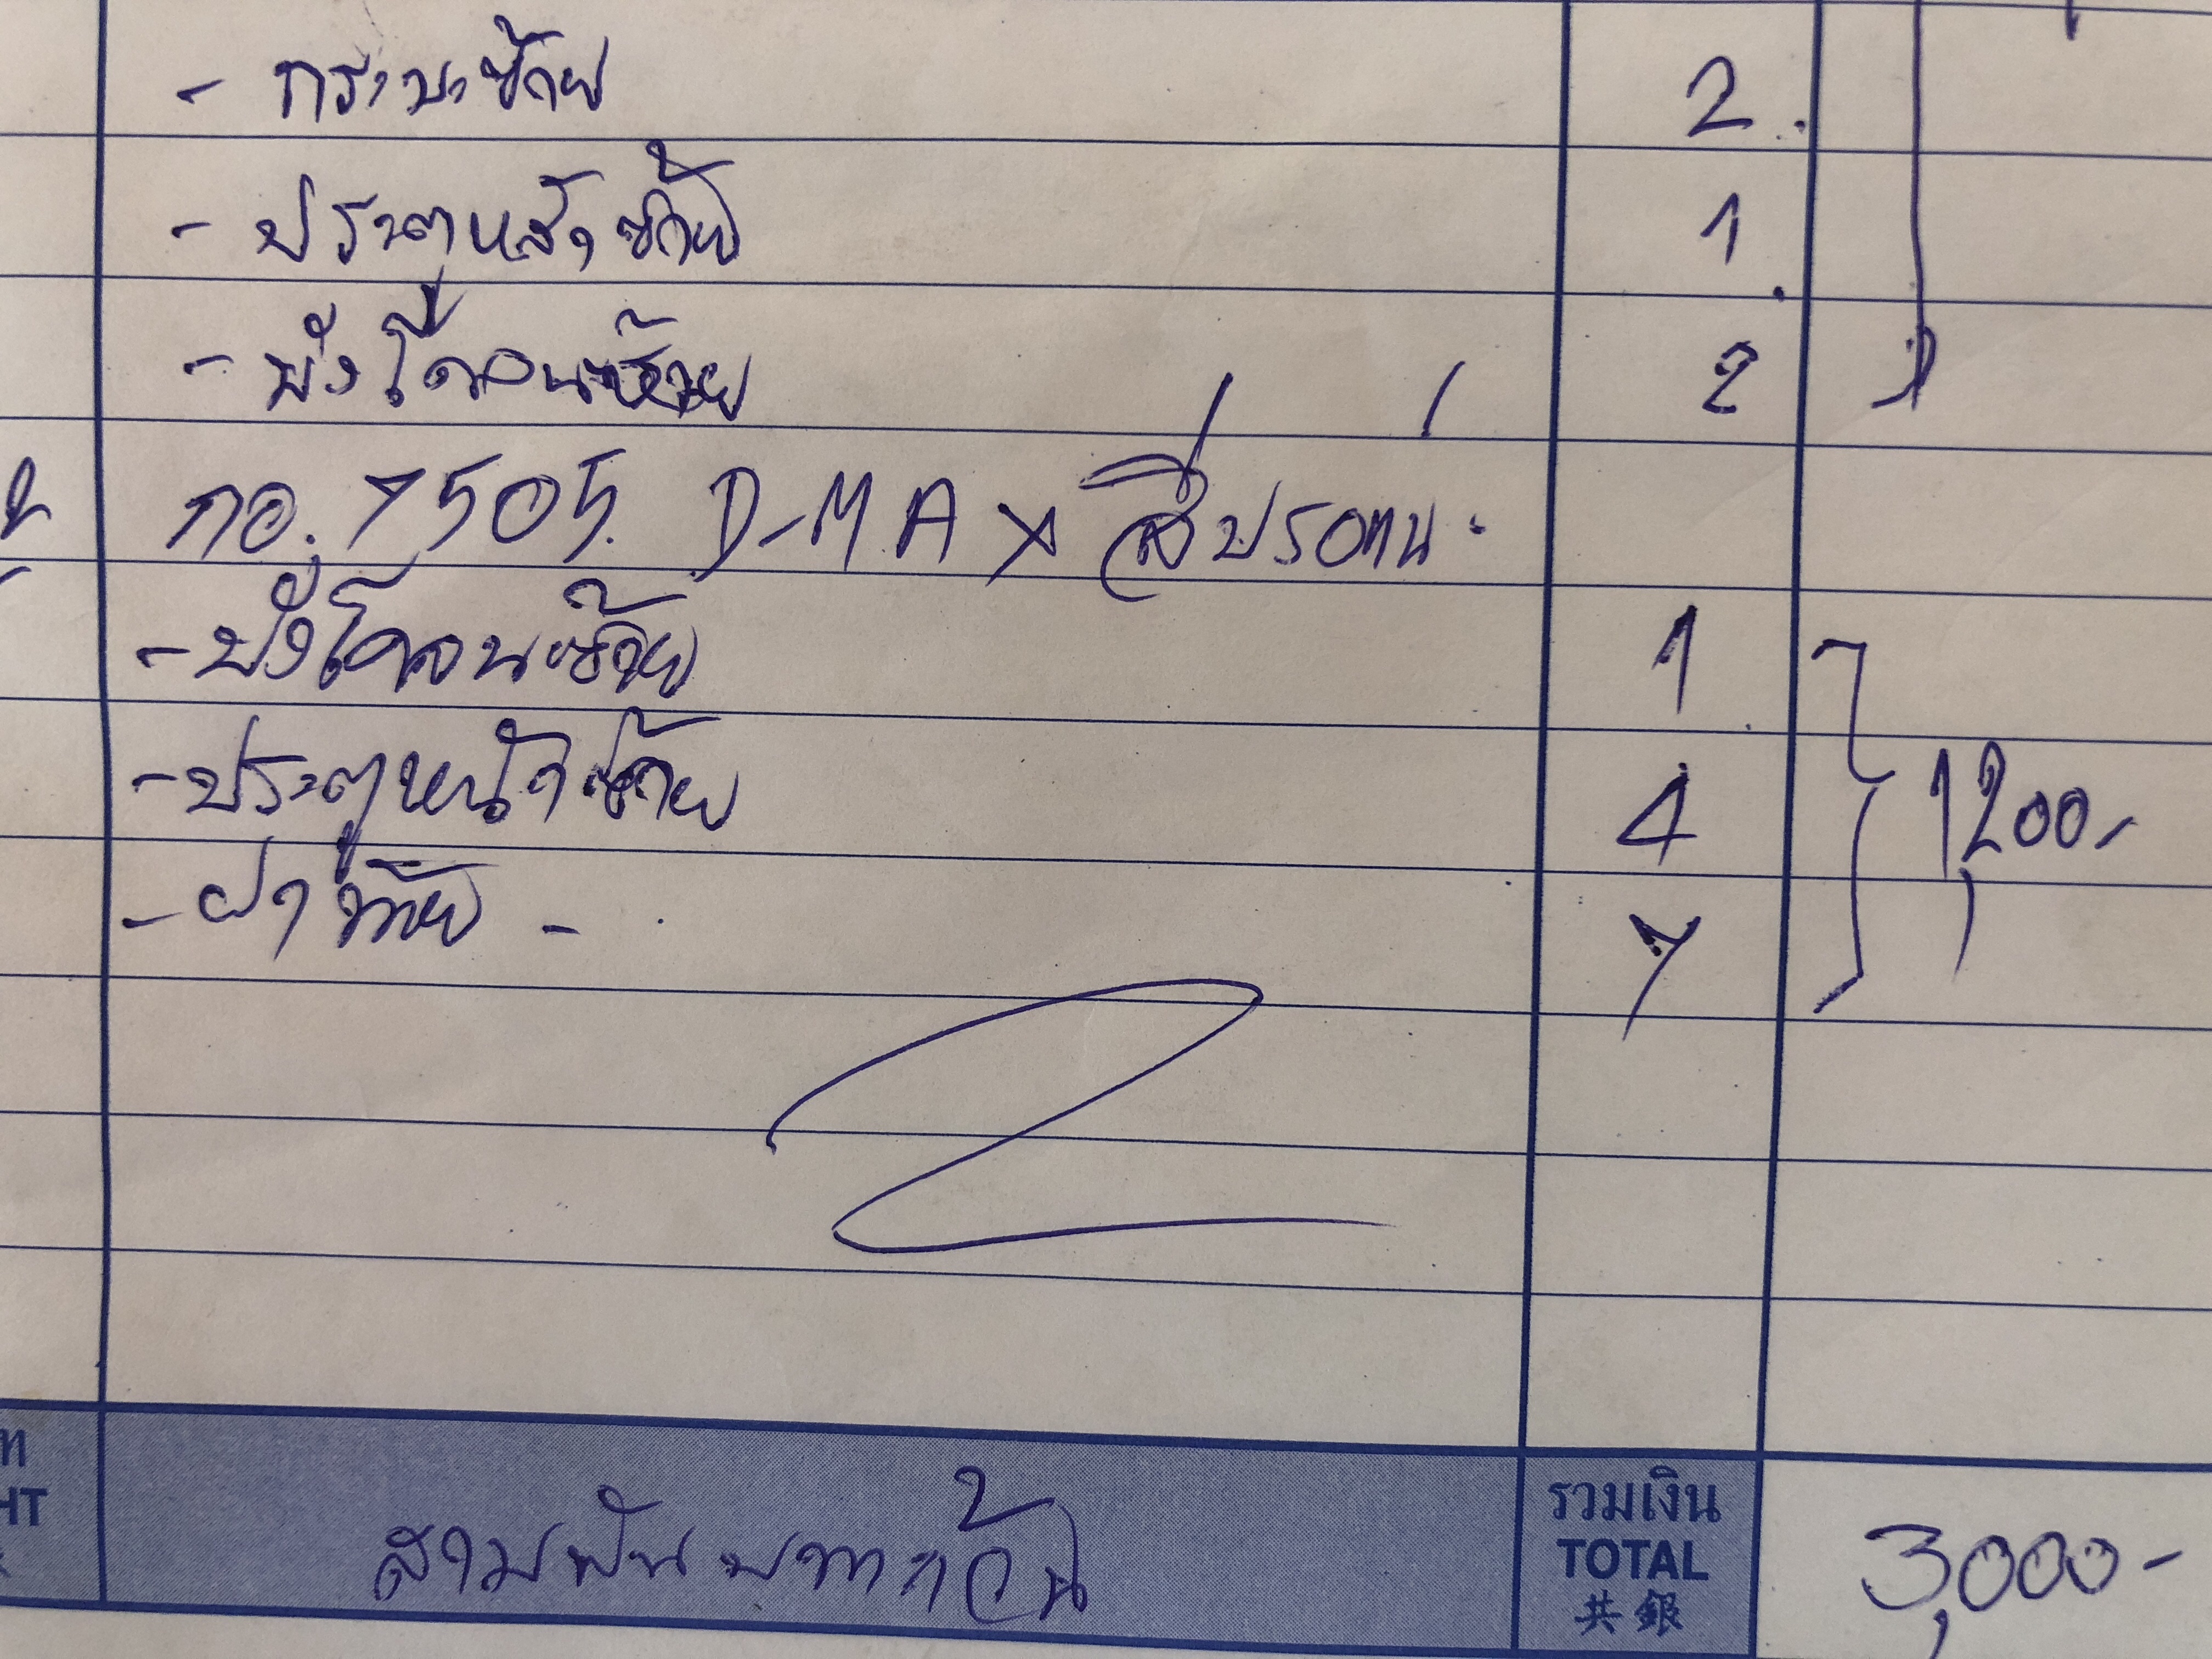 - กระบะซ้าย 2
- ประตูหลังซ้าย 1
- บังโคลนซ้าย 2
2 กอ. 7505. D-MAX สี่ประตู
- บังโคลนซ้าย 1
- ประตูหน้าซ้าย 4 1,200.-
- ฝาท้าย - 7
HT
สามพันบาทถ้วน รวมเงิน 3,000-
TOTAL
共銀